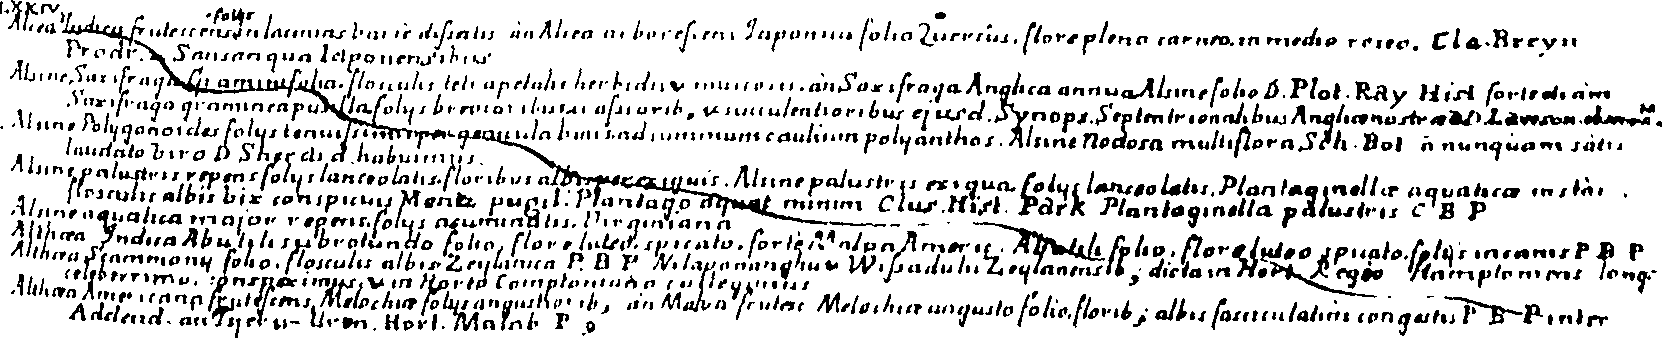 LXXIV
folys
Alcea Indica frutescens in lacinias varie dissectis an Alcea arborescens Japonica folio Quercus. flore pleno carneo. in medio roseo. Cla. Breyn
Prodr. 2 Sasanqua Iaponensibus
Alsine, Saxifraga Graminifolia. flosculis tetrapetalis herbidis v muscosis. an Saxifraga Anglica annua Alsine folio D. Plot. RAy Hist forte etiam
Saxifraga graminea pusilla folys brevioribus crassiorib, v succulentioribus ejusd. Synops. Septentrionalibus Anglia nostræ D. Lawson
Alsine Polygonoides folys tenuissimis per genicula binis ad summum caulium polyanthos. Alsine nodosa multiflora Sch. Bot a nunquam satis
laudato viro D Sherdi d. habuimus.
Alsine palustris repens folys lanceolatis. floribus albis per exiguis. Alsine palustris exigua. folys lanceolatis. Plantaginellæ aquaticæ instar.
flosculis albis vix conspicuis Mentz pugil. Plantago aquat minim Clus. Hist. Park Plantaginella palustris C B P
Alsine aquatica major repens. folys acuminatis. Virginiana
Althæa Indica Abutili subrotundo folio, flore luteo. spicato. forte Malva Americ. Abutili folio. flore luteo spicato. folys incanis P B P
Althæa Scammony folio. flosculis albis Zeylanica P. B P Wissaduli Zeylanensib, ; dicta in Hort Regio Hamptoniens longe
celeberrimo. conspeximus, v in Horto Comptoniano collegimus
Althæa Americana frutescens, Melochiæ folys angustiorib, an Malva frutesc Melochiæ angusto folio. florib, ; albis fasciculatim congestis P B P inter
Addend. an Hort. Malab P 9